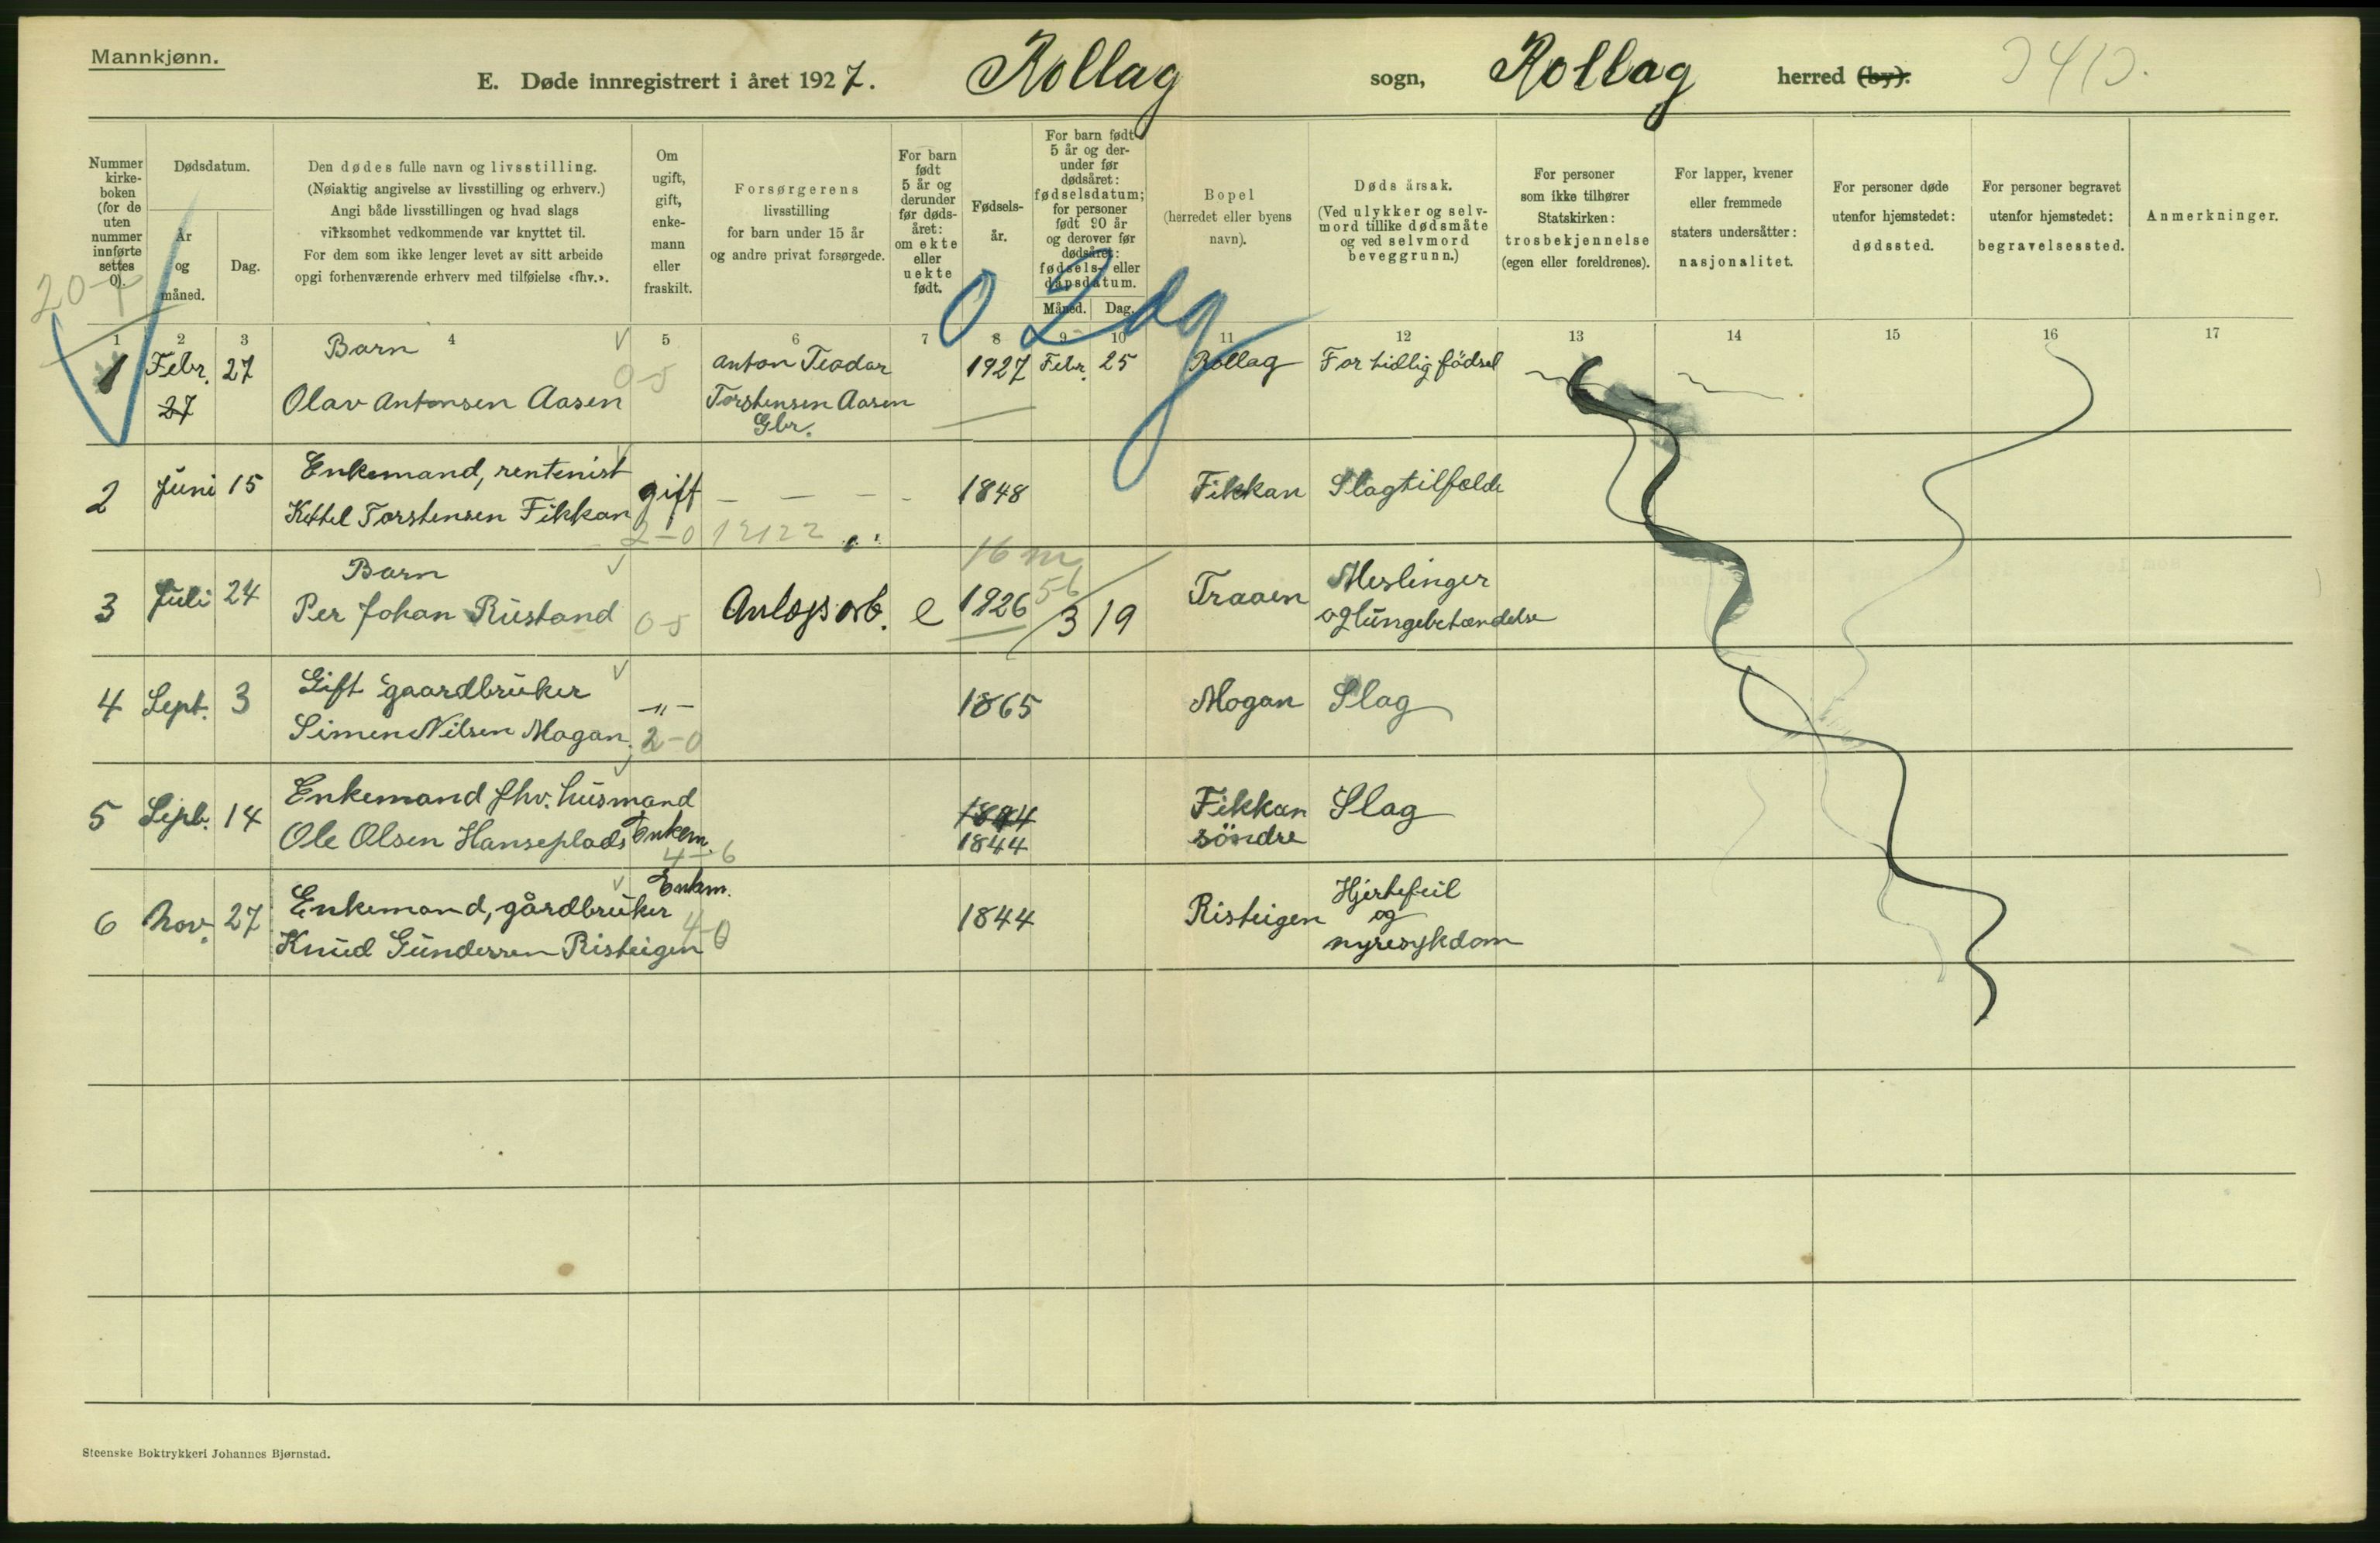 Mannkjønn.
E. Døde innregistrert i året 1927. Rollag sogn, Rollag herred (by).
Nummer
kirke-
boken
(for de
uten
nummer
innførte
settes
0).
Dødsdatum.
År
og
måned.
Dag.
Den dødes fulle navn og livsstilling.
(Nøiaktig angivelse av livsstilling og erhverv.)
Angi både livsstillingen og hvad slags
virksomhet vedkommende var knyttet til.
For dem som ikke lenger levet av sitt arbeide
opgi forhenværende erhverv med tilføielse «fhv.».
Om
ugift,
gift,
enke-
mann
eller
fraskilt.
Forsørgerens
livsstilling
for barn under 15 år
og andre privat forsørgede.
For barn
født
5 år og
derunder
før døds-
året:
om ekte
eller
uekte
født.
Fødsels-
år.
For barn født
5 år og der-
under før
dødsåret:
fødselsdatum;
for personer
født 90 år
og derover før
dødsåret:
fødsels- eller
dåpsdatum.
Måned. Dag.
Bopel
(herredet eller byens
navn).
Dødsårsak.
(Ved ulykker og selv-
mord tillike dødsmåte
og ved selvmord
beveggrunn.)
For personer
som ikke tilhører
Statskirken:
trosbekjennelse
(egen eller foreldrenes).
For lapper, kvener
eller fremmede
staters undersåtter:
nasjonalitet.
For personer døde
utenfor hjemstedet:
dødssted.
For personer begravet
utenfor hjemstedet:
begravelsessted.
Anmerkninger.
0 2 dg
1 2 3 4 5 6 7 8 9 10 11 12 13 14 15 16 17
1 Febr. 27 Barn Anton Teodor 1927 Febr. 25 Rollag For tidlig födsel
27 Olav Antonsen Aasen 0-5 Torstensen Aasen
Gbr.
2 Juni 15 Enkemand, rentenist gift — — — - 1848 Fikkan Slagtilfælde
Kettel Torstensen Fikkan 2-0 12122
16 m
3 Juli 24 Barn Anlægsarb. e 1926 3 19 Traaen Meslinger
Per Johan Rustand 0-5 og lungebetændelse
4 Sept. 3 Gift gaardbruker -"- 1865 Mogan Slag
Simen Nilsen Mogan. 2-0
5 Sept. 14 Enkemand fhv. husmand 1894 Fikkan Slag
Ole Olsen Hanseplads Enkem. 1844 söndre
4-6
6 Nov. 27 Enkemand, gårdbruker Enkm. 1844 Risteigen Hjertefeil
og
Knud Gundersen Risteigen 4-0 nyresykdom
Steenske Boktrykkeri Johannes Bjørnstad.